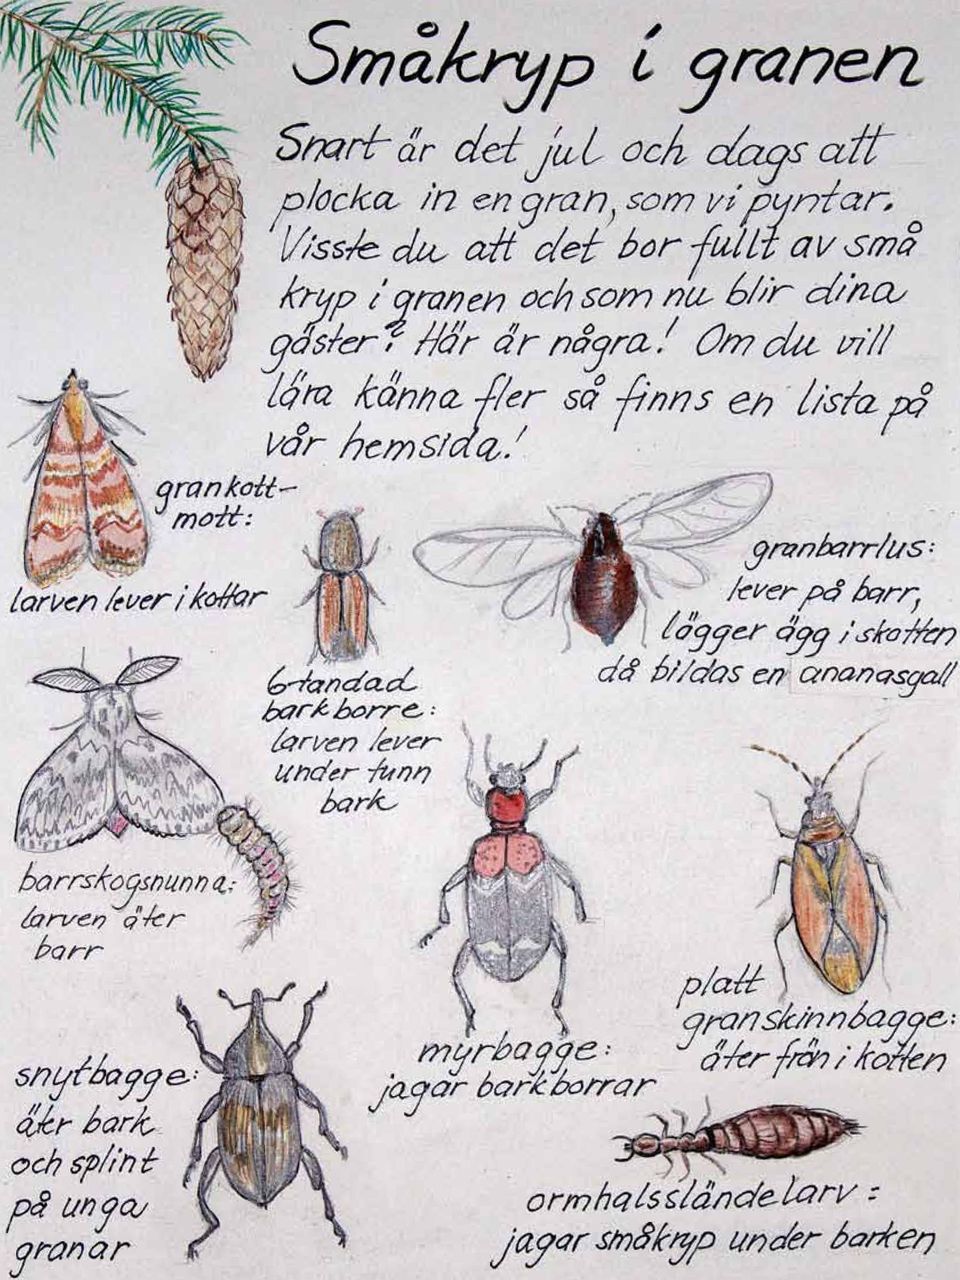 Småkryp i granen
Snart är det jul och dags att
plocka in en gran, som vi pyntar.
Visste du att det bor fullt av små
kryp i granen och som nu blir dina
gäster? Här är några! Om du vill
lära känna fler så finns en lista på
vår hemsida!
grankott-
mott:
larven lever i kottar
6-tandad
barkborre:
larven lever
under tunn
bark
granbarrlus:
lever på barr,
lägger ägg i skotten
då bildas en ananasgall
barrskogsnunna:
larven äter
barr
myrbagge:
jagar barkborrar
platt
granskinnbagge:
äter frön i kotten
snytbagge:
äter bark
och splint
på unga
granar
ormhalssländelarv:
jagar småkryp under barken